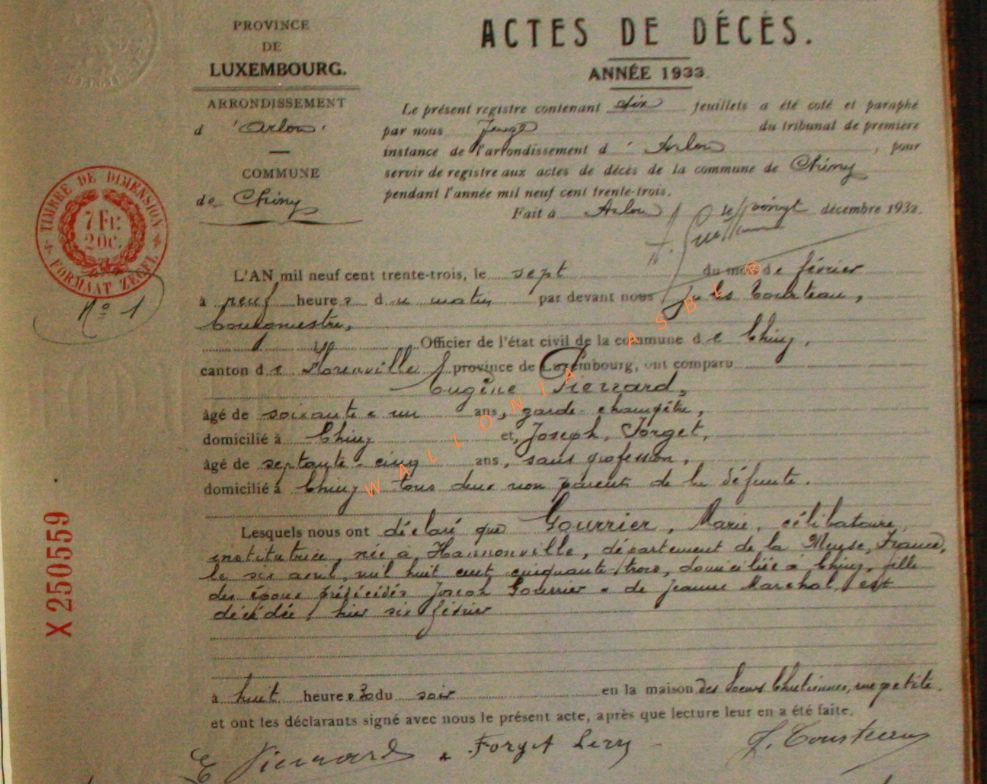 PROVINCE
DE
LUXEMBOURG.
ARRONDISSEMENT
d'Arlon.
COMMUNE
de Chiny
TIMBRE DE DIMENSION
7 Fr.
20c.
FORMAAT ZEGEL
No 1
X 250559
ACTES DE DÉCÈS.
ANNÉE 1933.
Le présent registre contenant dix feuillets a été coté et paraphé
par nous Juge du tribunal de première
instance de l'arrondissement d'Arlon, pour
servir de registre aux actes de décès de la commune de Chiny
pendant l'année mil neuf cent trente-trois.
Fait à Arlon le vingt décembre 1932.
L'AN mil neuf cent trente-trois, le sept du mois de février
à neuf heures du matin par devant nous Jules Tourteau,
bourgmestre,
Officier de l'état civil de la commune de Chiny,
canton de Florenville province de Luxembourg, ont comparu
Eugène Pierrard,
âgé de soixante & un ans, garde-champêtre,
domicilié à Chiny et, Joseph Forget,
âgé de septante-cinq ans, sans profession,
domicilié à Chiny tous deux non parents de la défunte.
Lesquels nous ont déclaré que Gourrier, Marie, célibataire,
institutrice, née à Hannonville, département de la Meuse, France,
le six avril, mil huit cent cinquante trois, domiciliée à Chiny, fille
des époux prédécédés Joseph Gourrier & de Jeanne Marchal, est
décédée hier six février
à huit heures 30 du soir en la maison des Soeurs Chrétiennes, rue petite.
et ont les déclarants signé avec nous le présent acte, après que lecture leur en a été faite.
E Pierrard & Forget J. Tourteau
WALLONIA ASBL ©